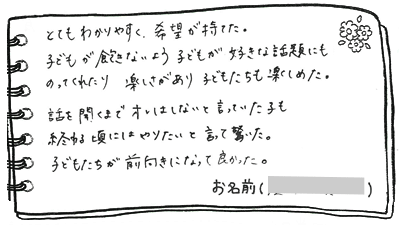 とてもわかりやすく、希望が持てた。
子どもが飽きないよう子どもが好きな話題にも
のってくれたり 楽しさがあり子どもたちも楽しめた。
話を聞くまでオレはしないと言っていた子も
終わる頃にはやりたいと言って驚いた。
子どもたちが前向きになって良かった。
お名前( )